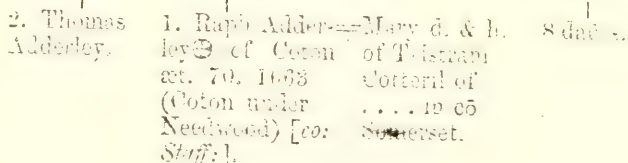 2. Thomas Adderley.
1. Raph Adder-
ley⊕ of Coton
æt. 70. 1663
(Coton under
Needwood) [co:
Staff:].
Mary d. & h.
of Tristram
Cotteril of
.... in cō
Somerset.
8 dau